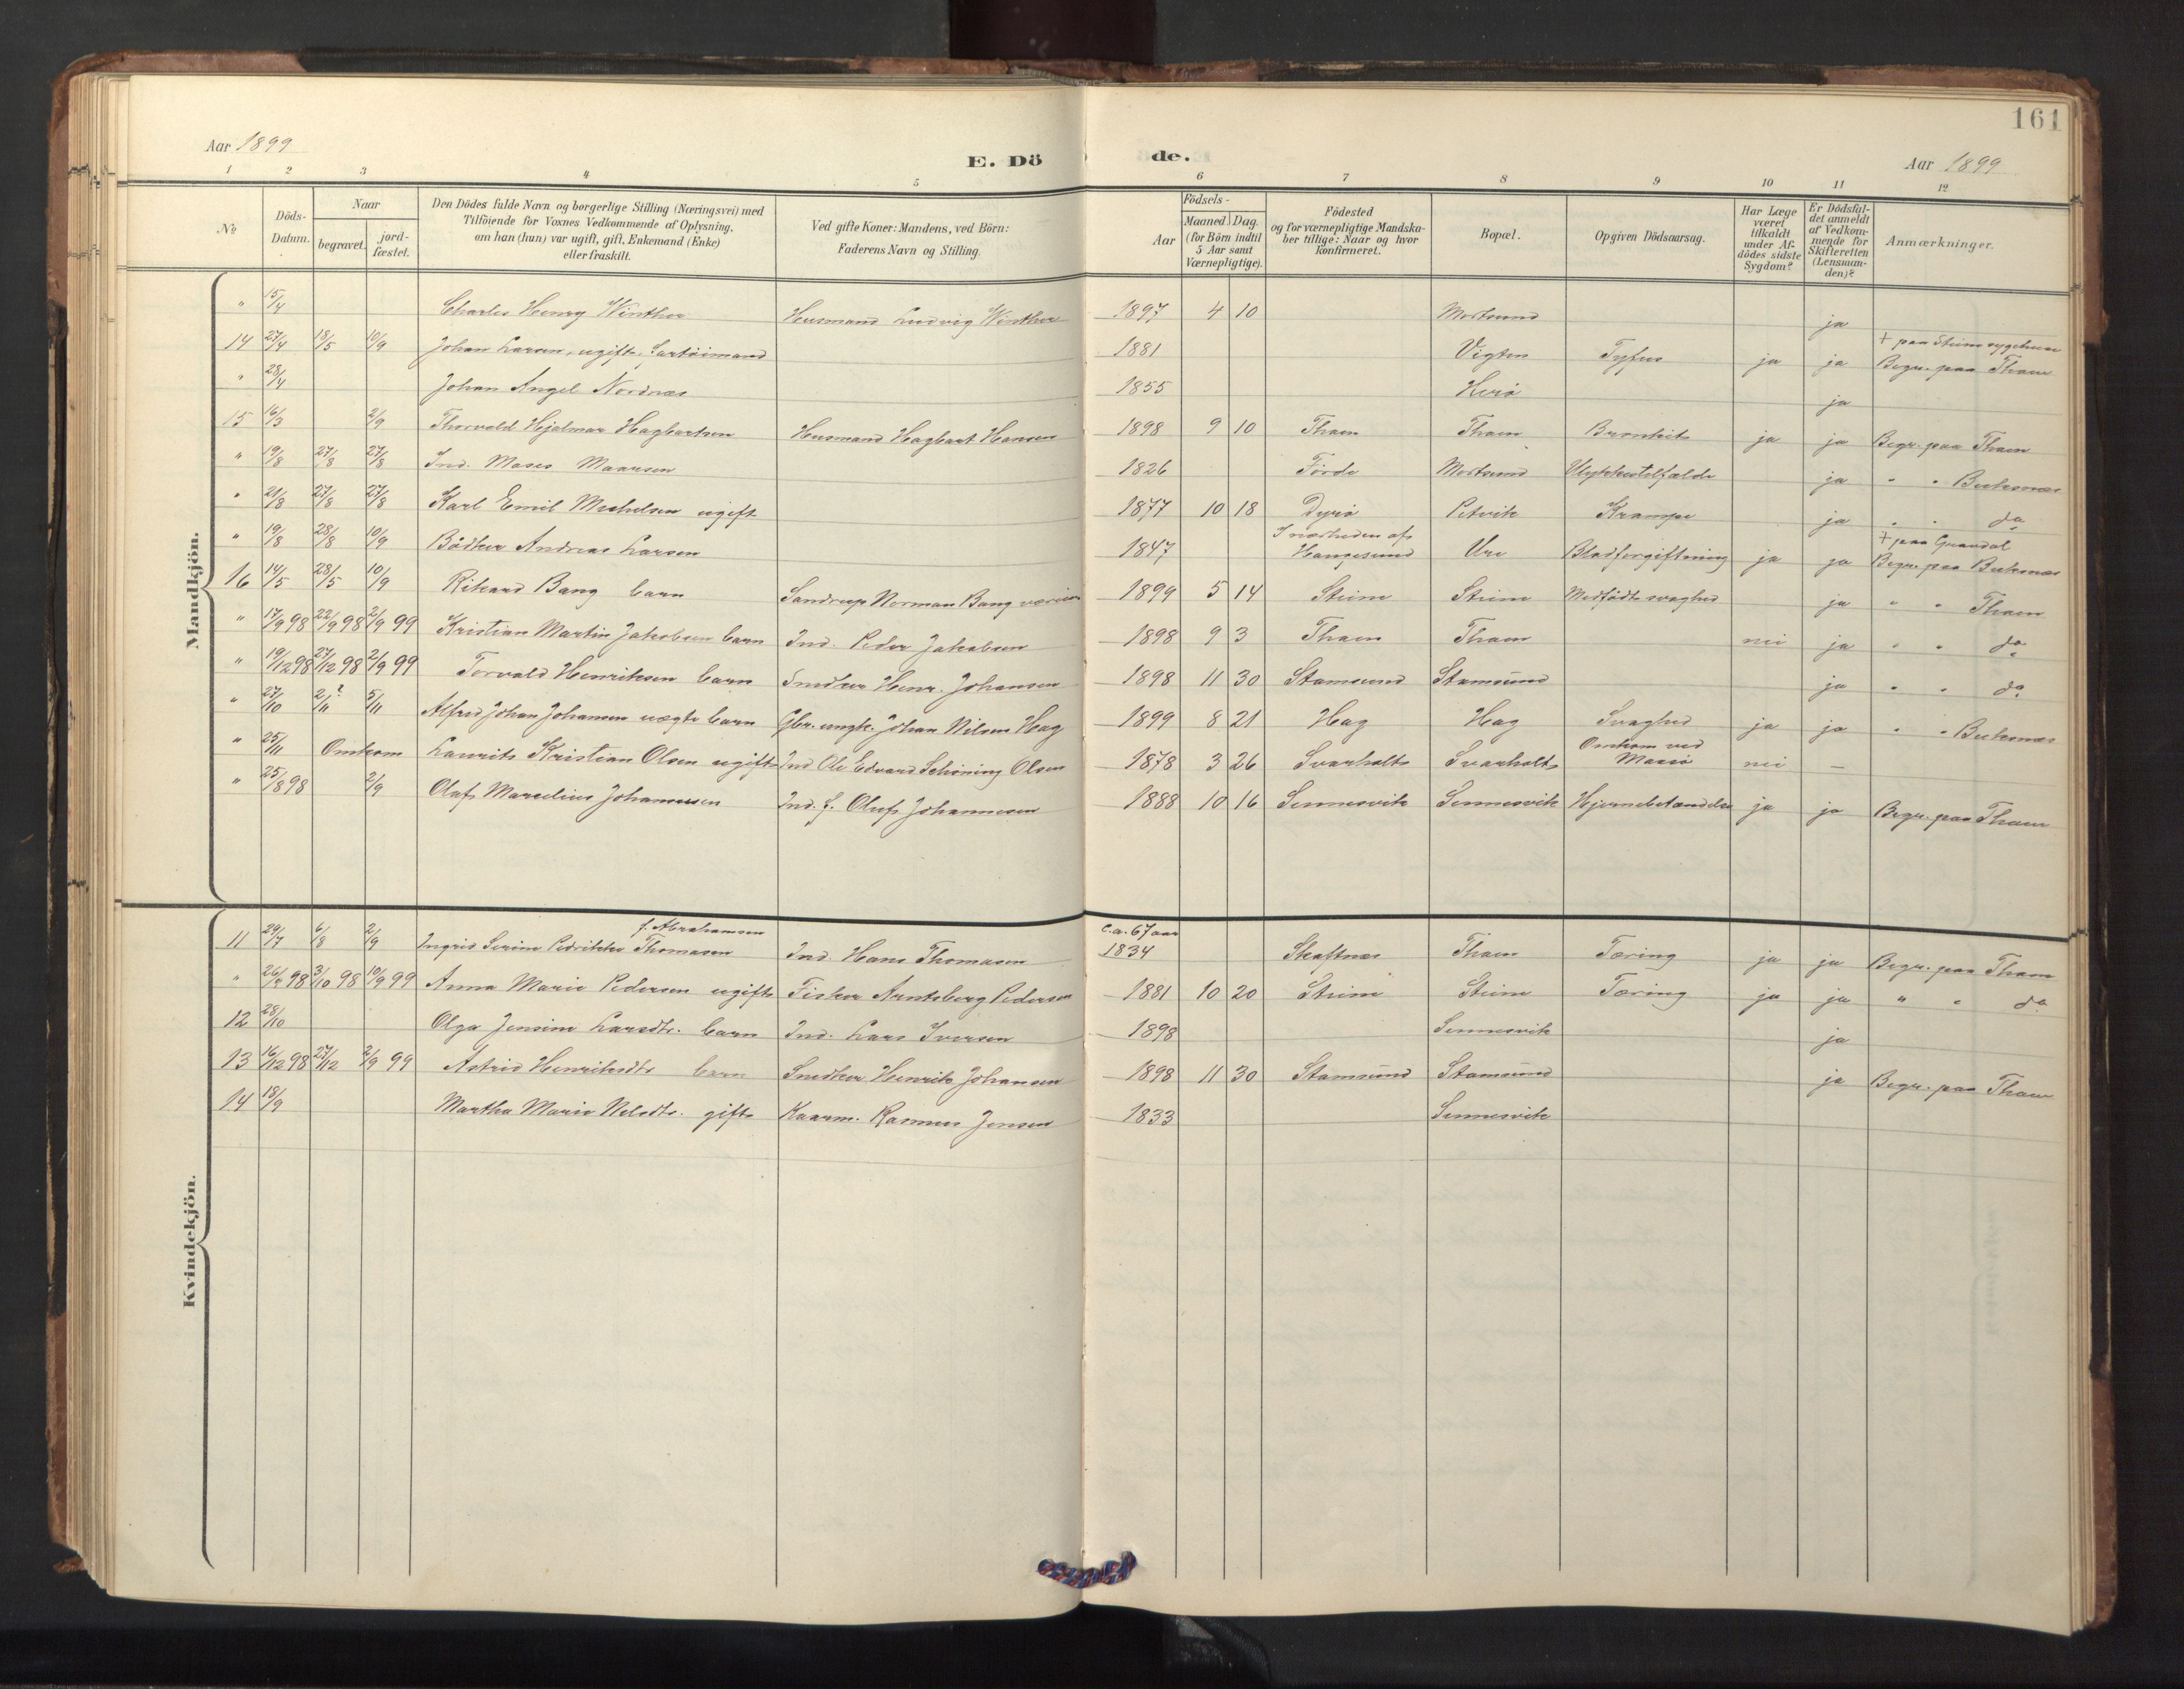 161
Aar 1899
E. Dö
de.
Aar 1899
1 2 3 4 5 6 7 8 9 10 11 12
№
Döds-
Datum.
Naar
begravet.
jord-
fæstet.
Den Dödes fulde Navn og borgerlige Stilling (Næringsvei) med
Tilföiende for Voxnes Vedkommende af Oplysning,
om han (hun) var ugift, gift, Enkemand (Enke)
eller fraskilt.
Ved gifte Koner: Mandens, ved Börn:
Faderens Navn og Stilling.
Födsels-
Aar
Maaned Dag.
(for Börn indtil
5 Aar samt
Værnepligtige).
Födested
og for værnepligtige Mandska-
ber tillige: Naar og hvor
konfirmeret.
Bopæl.
Opgiven Dödsaarsag.
Har Læge
været
tilkaldt
under Af-
dödes sidste
Sygdom?
Er Dödsfal-
det anmeldt
af Vedkom-
mende for
Skifteretten
(Lensman-
den)?
Anmærkninger.
Mandkjön.
" 15/4 Charles Henry Winther Husmand Ludvig Winther 1897 4 10 Mortsund ja
+ paa Steine sygehus
14 27/4 18/5 10/9 Johan Larsen, ugift, 1881 Vigten Tyfus ja ja Begr. paa Thaen
" 28/4 Johan Angel Nordnæs 1855 Herö ja
15 16/3 2/9 Thorvald Hjalmar Hagbartsen Husmand Hagbart Hansen 1898 9 10 Thaen Thaen Bronkit ja ja Begr. paa Thaen
" 19/8 27/8 27/8 Ind. Moses Maursen 1826 Förde Mortsund Ulykkestilfælde ja " " Buksnæs
" 21/8 27/8 27/8 Karl Emil Michelsen ugift 1877 10 18 Dyrö Petvik Krampe ja " " do
+ paa Gravdal
" 19/8 28/8 10/9 Bödker Andreas Larsen 1847 I nærheden af
Haugesund Ure Blodforgiftning ja ja Begr. paa Buksnæs
16 14/5 28/5 10/9 Rikard Bang barn Sandrup Norman Bang 1899 5 14 Steine Steine Medfödt svaghed ja " " Thaen
" 17/9 98 22/9 98 2/9 99 Kristian Martin Jakobsen barn Ind. Peder Jakobsen 1898 9 3 Thaen Thaen nei ja " " do
" 19/12 98 27/12 98 2/9 99 Torvald Henriksen barn Snedker Henr. Johansen 1898 11 30 Stamsund Stamsund ja " " do
" 27/10 2/11 ? 5/11 Alfred Johan Johansen uægte barn Gbr. ungk. Johan Nilsen Hag 1899 8 21 Hag Hag Svaghed ja ja " " Buksnæs
" 25/11 Omkom Laurits Kristian Olsen ugift Ind Ole Edvard Schöning Olsen 1878 3 26 Svarholt Svarholt Omkom ved
Masö nei —
" 25/8 98 2/9 Olaf Marselius Johannessen Ind. f. Oluf Johannesen 1888 10 16 Sennesvik Sennesvik Hjernebetændelse ja ja Begr. paa Thaen
Kvindekjön.
f. Abrahamsen
c.a. 67 aar
11 29/7 6/8 2/9 Ingrid Serine Pedrikke Thomasen Ind. Hans Thomasen 1834 Skaftnæs Thaen Tæring ja ja Begr. paa Thaen
" 26/9 98 3/10 98 10/9 99 Anna Marie Pedersen ugift Fisker Arntsberg Pedersen 1881 10 20 Steine Steine Tæring ja ja " " do
12 28/10 Olga Jensine Larsdtr. barn Ind. Lars Iversen 1898 Sennesvik ja
13 16/12 98 27/12 2/9 99 Astrid Henriksdtr barn Snedker Henrik Johansen 1898 11 30 Stamsund Stamsund ja Begr. paa Thaen
14 18/9 Martha Marie Nilsdtr. gift Kaarm. Rasmus Jensen 1833 Sennesvik